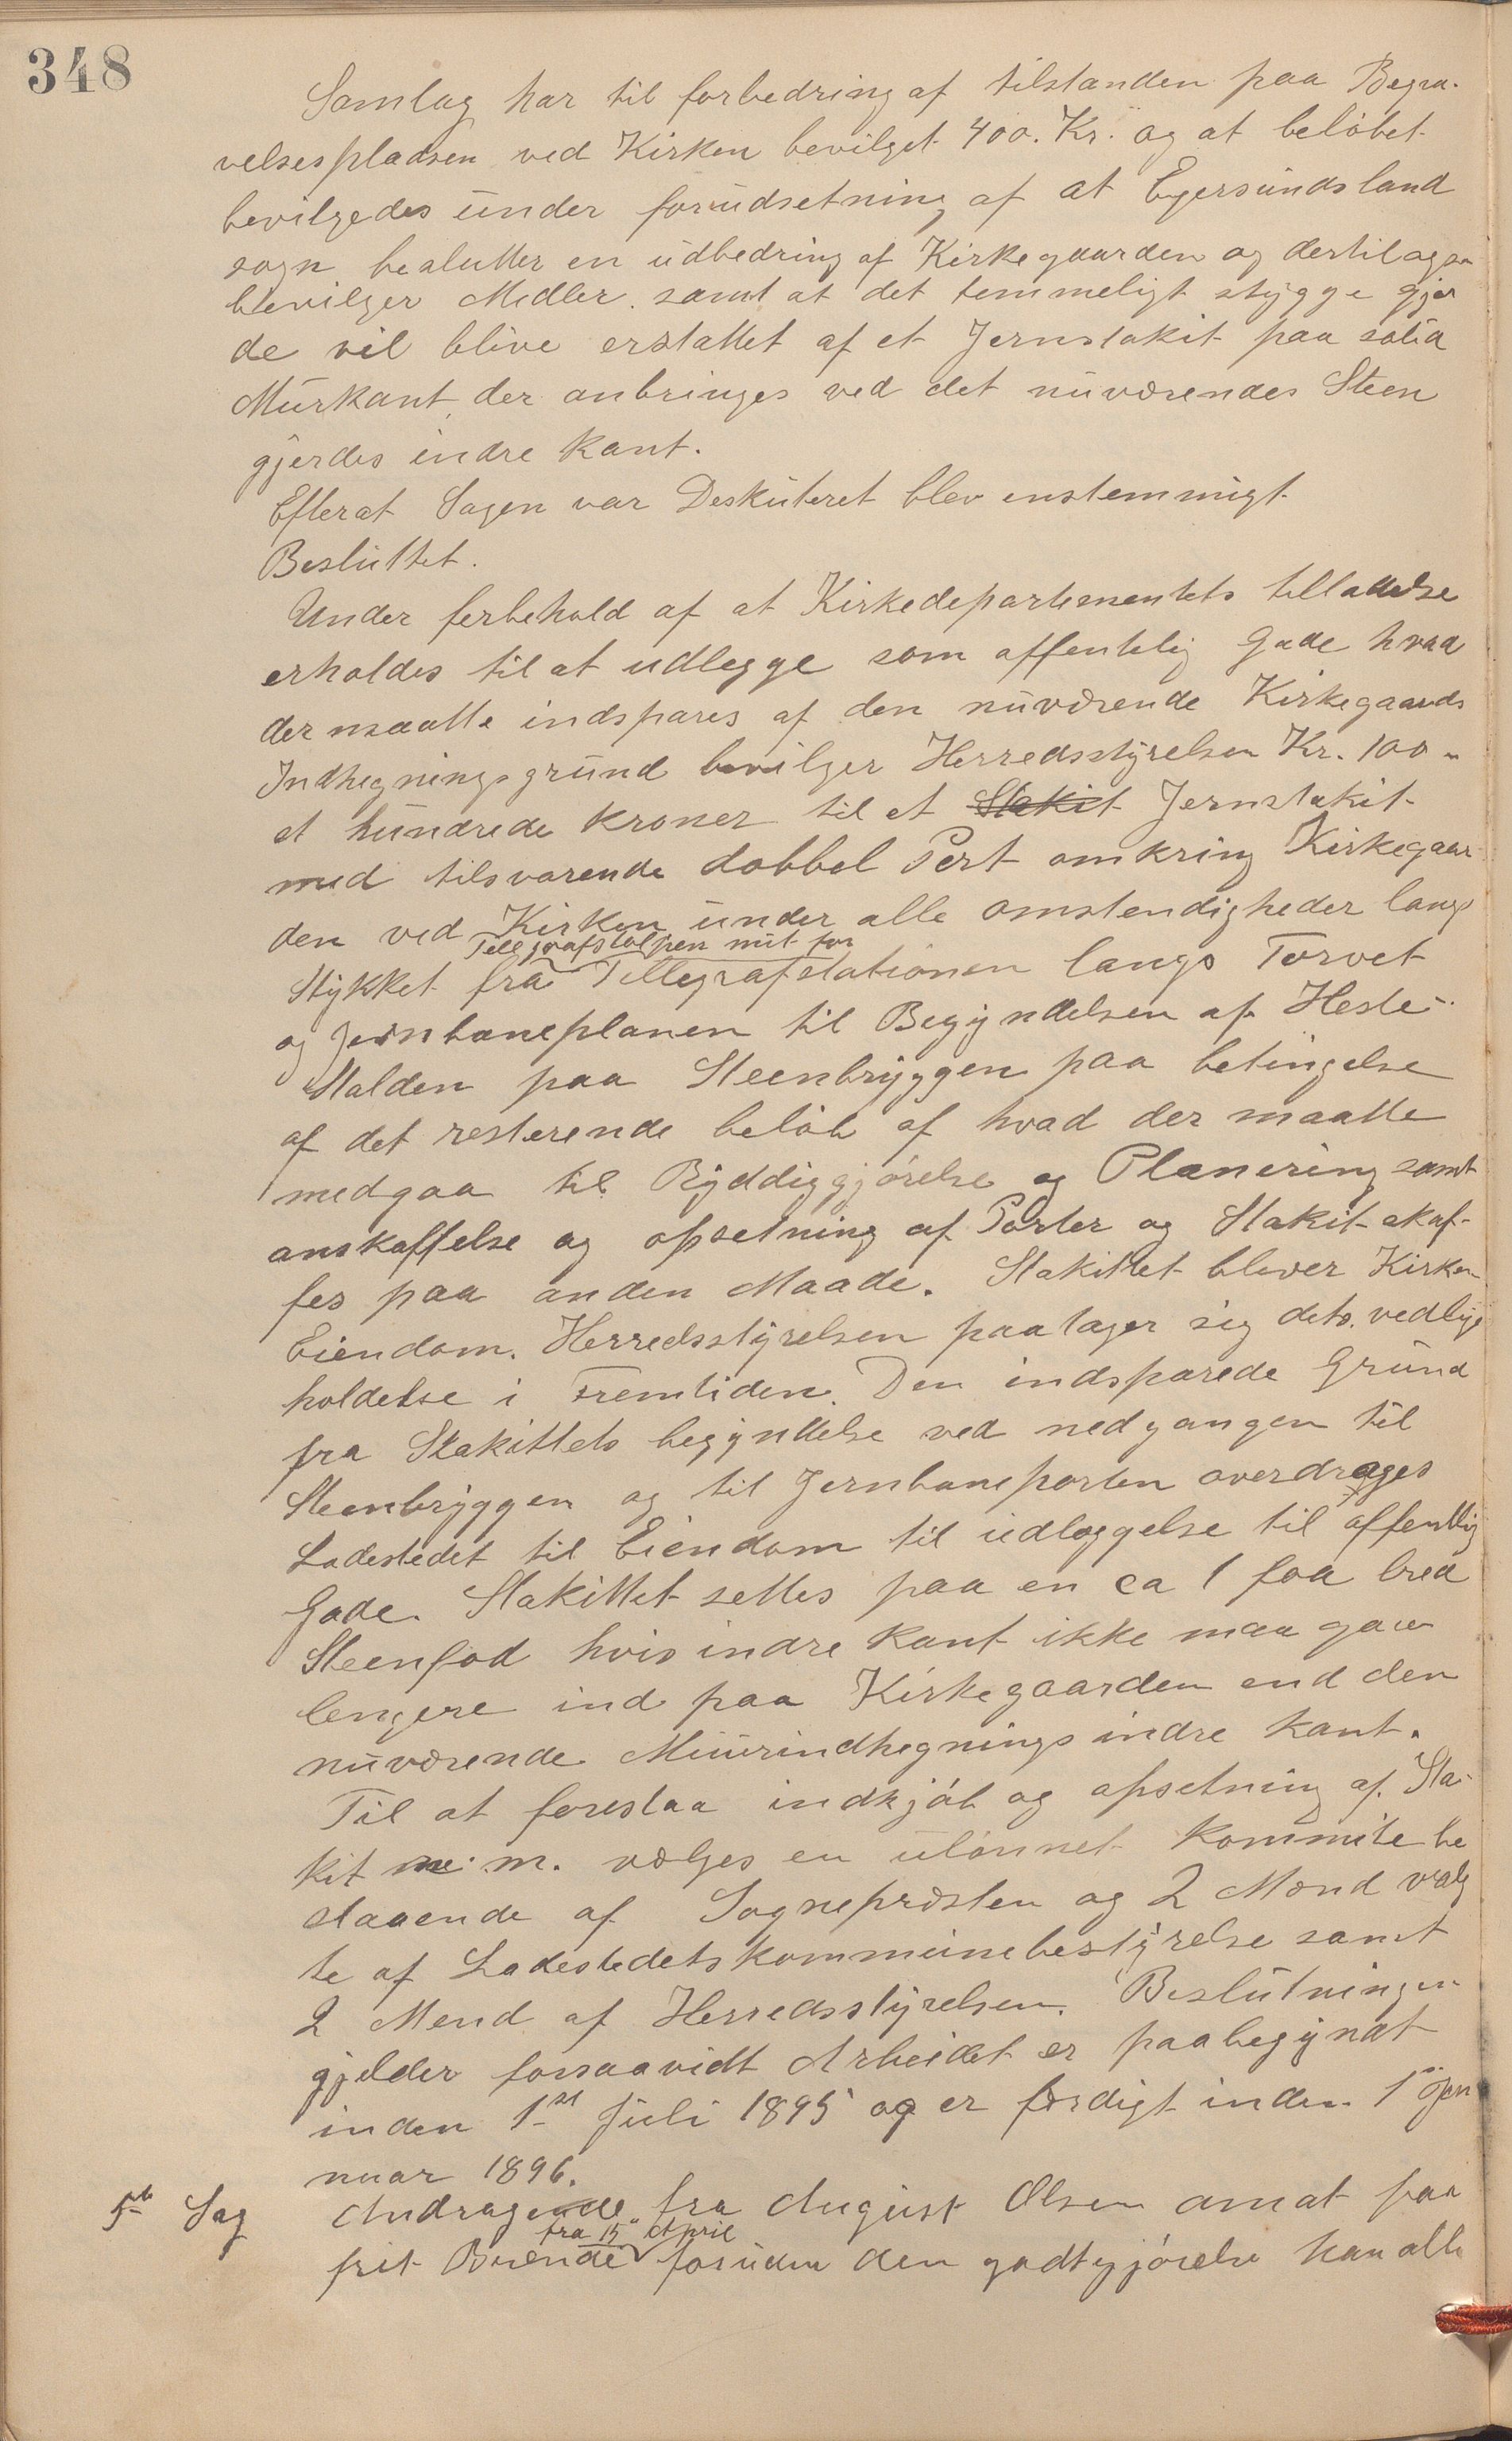 348
Samlag har til forbedring af tilstanden paa Begra-
velsespladsen ved Kirken bevilget 400. Kr. og at beløbet
bevilgedes under forudsetning af at Egersundsland
sogn beslutter en udbedring af Kirkegaarden og dertil ogsaa
bevilger Midler. samt at det temmeligt stygge gjer
de vil blive erstattet af et Jernstakit paa solid
Murkant, der anbringes ved det nuværendes Steen
gjerdes indre kant.
Efterat Sagen var Deskuteret blev enstemmigt
Besluttet.
Under forbehold af at Kirkedepartementets tilladelse
erholdes til at udlegge som offentelig Gade hvad
der maatte indspares af den nuværende Kirkegaards
Indhegningsgrund bevilger Herredsstyrelsen Kr. 100 -
et hundrede kroner til et Stakit Jernstakit
med tilsvarende dobbel Port omkring Kirkegaar-
den ved Kirken under alle omstendigheder langs
Tellgrafstolpen mit for
Stykket fra Tellegrafstationen langs Torvet
og Jernbaneplanen til Begyndelsen af Heste-
Stalden paa Steenbryggen paa betingelse
af det resterende beløb af hvad der maatte
medgaa til Ryddiggjørelse og Planering samt
anskaffelse og opsetning af Porter og Stakit skaf-
fes paa anden Maade. Stakittet blever Kirken
Eiendom. Herredsstyrelsen paatager sig dets vedlige
holdelse i Fremtiden. Den indsparede Grund
fra Stakittets begyndelse ved nedgangen til
Steenbryggen og til Jernbaneporten overdrages
Ladestedet til Eiendom til udlæggelse til offentlig
Gade. Stakittet settes paa en ca 1 fod bred
Steenfod hvis indre kant ikke maa gaa
lengere ind paa Kirkegaarden end den
nuværende Muurindhegnings indre kant.
Til at foreslaa indkjøb og opsetning af Sta-
kit m. m. vælges en ulønnet Kommite be
staaende af Sognepræsten og 2 Mænd valg
te af Ladestedets kommunebestyrelse samt
2 Mend af Herredsstyrelsen. Beslutningen
gjelder forsaavidt Arbeidet er paabegyndt
inden 1ste Juli 1895 og er færdigt inden 1ste Jan
nuar 1896.
5te Sag Andragende fra August Olsen om at faa
fra 15 April
frit Brænde foruden den godtgjørelse han alle